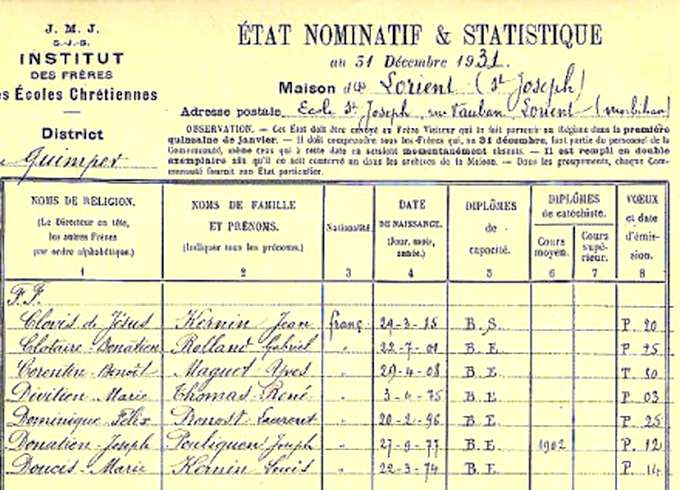 J. M. J.
S.-J.-B.
INSTITUT
DES FRÈRES
es Écoles Chrétiennes
District
Quimper
ÉTAT NOMINATIF & STATISTIQUE
au 31 Décembre 1931.
Maison de Lorient (St Joseph)
Adresse postale Ecole St Joseph, rue Vauban, Lorient (Morbihan)
OBSERVATION. — Cet État doit être envoyé au Frère Visiteur qui le fait parvenir au Régime dans la première
quinzaine de janvier. — Il doit comprendre tous les Frères qui, au 31 décembre, font partie du personnel de la
Communauté, même ceux qui à cette date en seraient momentanément absents. — Il est rempli en double
exemplaire afin qu'il en soit conservé un dans les archives de la Maison. — Dans les groupements, chaque Com-
munauté fournit son État particulier.
NOMS DE RELIGION.
(Le Directeur en tête,
les autres Frères
par ordre alphabétique.)
1
NOMS DE FAMILLE
ET PRÉNOMS.
(Indiquer tous les prénoms.)
2
Nationalité.
3
DATE
DE NAISSANCE.
(Jour, mois,
année.)
4
DIPLÔMES
de
capacité.
5
DIPLÔMES
de catéchiste.
Cours
moyen.
6
Cours
supé-
rieur.
7
VŒUX
et date
d'émis-
sion.
8
F.F.
Clovis de Jésus Kernin Jean franç. 29-3-85 B.S. P. 20
Clotaire-Donatien Rolland Gabriel " 22-7-01 B.E. P. 25
Corentin-Benoît Maguet Yves " 29-4-08 B.E. T. 30
Divitien-Marie Thomas René " 3-4-75 B.E. P. 03
Dominique-Félix Pronost Laurent " 20-2-96 B.E. P. 25
Donatien-Joseph Pouliquen Joseph " 27-9-77 B.E. 1902 P. 12
Doucis-Marie Kernin Louis " 22-3-74 B.E. P. 14